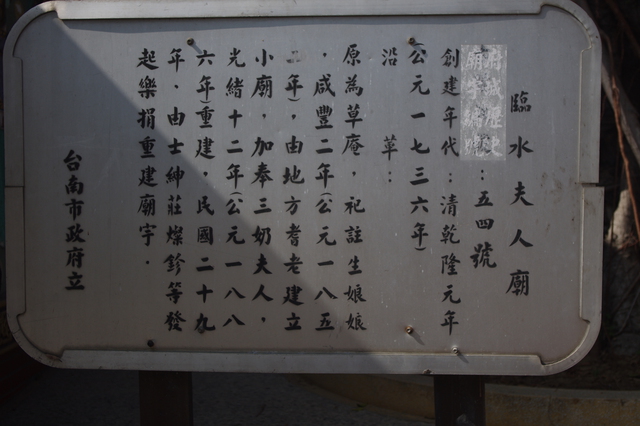 臨水夫人廟
府城歷史廟宇編號：五四號
創建年代：清乾隆元年
（公元一七三六年）
沿革：
原為草庵，祀註生娘娘
，咸豐二年（公元一八五
二年），由地方耆老建立
小廟，加奉三奶夫人，
光緒十二年（公元一八八
六年）重建，民國二十九
年，由士紳莊燦鉁等發
起樂捐重建廟宇．
台南市政府立